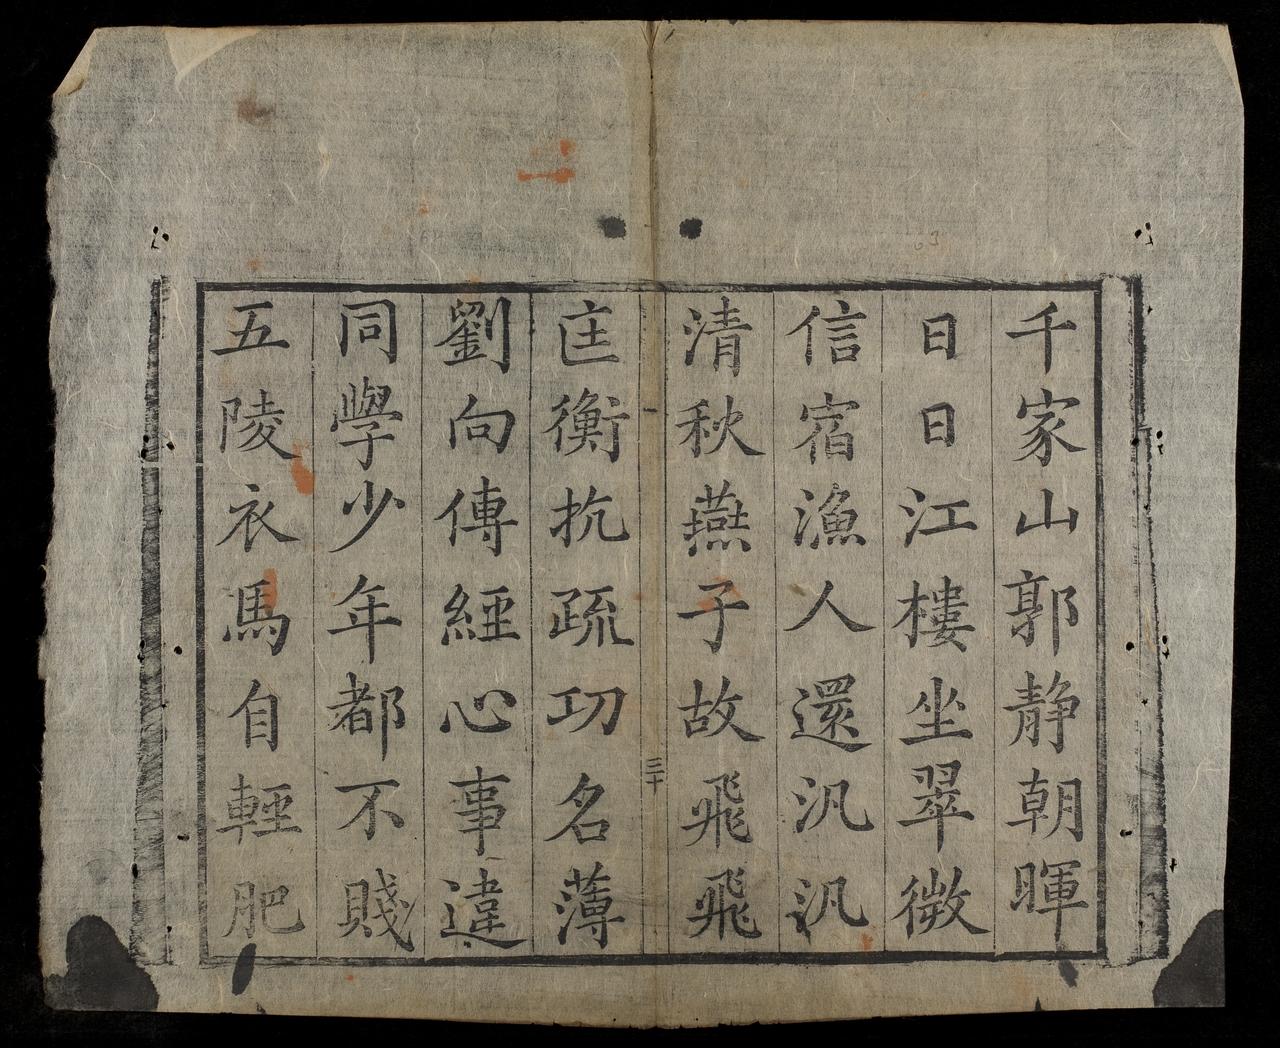 千家山郭静朝暉
日日江樓坐翠微
信宿漁人還汎汎
清秋燕子故飛飛
三十
匡衡抗疏功名薄
劉向傳經心事違
同學少年都不賤
五陵衣馬自輕肥